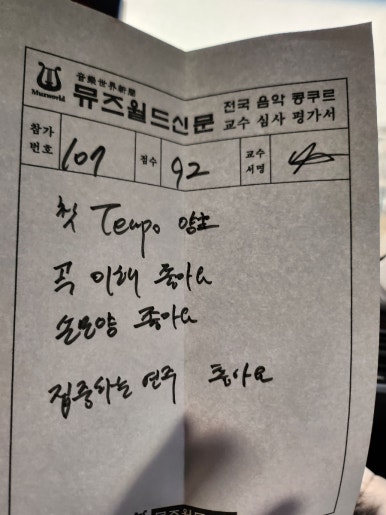 音樂世界新聞
Musworld
뮤즈월드신문
전국 음악 콩쿠르
교수 심사 평가서
참가 번호
107
점수
92
교수 서명
첫 Tempo 양호
곡 이해 좋아요
손모양 좋아요
집중하는 연주 좋아요
뮤즈월드